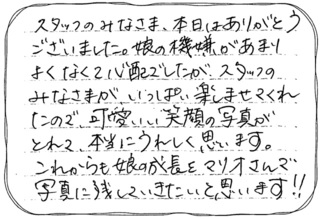 スタッフのみなさま、本日はありがとう
ございました。娘の機嫌があまり
よくなくて心配でしたが、スタッフの
みなさまが、いっぱい楽しませてくれ
たので、可愛いい笑顔の写真が
とれて、本当にうれしく思います。
これからも娘の成長をマリオさんで
写真に残していきたいと思います!!